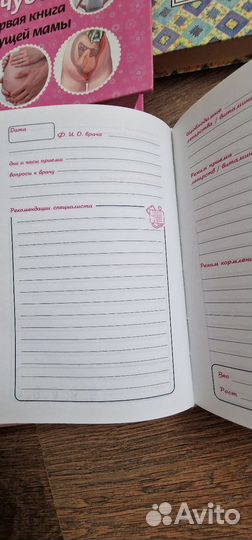 чу
рвая книга
ущей мамы
Дата
Ф. И. О. врача
дни и часы приема
вопросы к врачу
Рекомендации специалиста
Необходимые
лекарства / витамины
Режим приема
лекарств / витаминов
Режим кормления
Вес
Рост
Avito